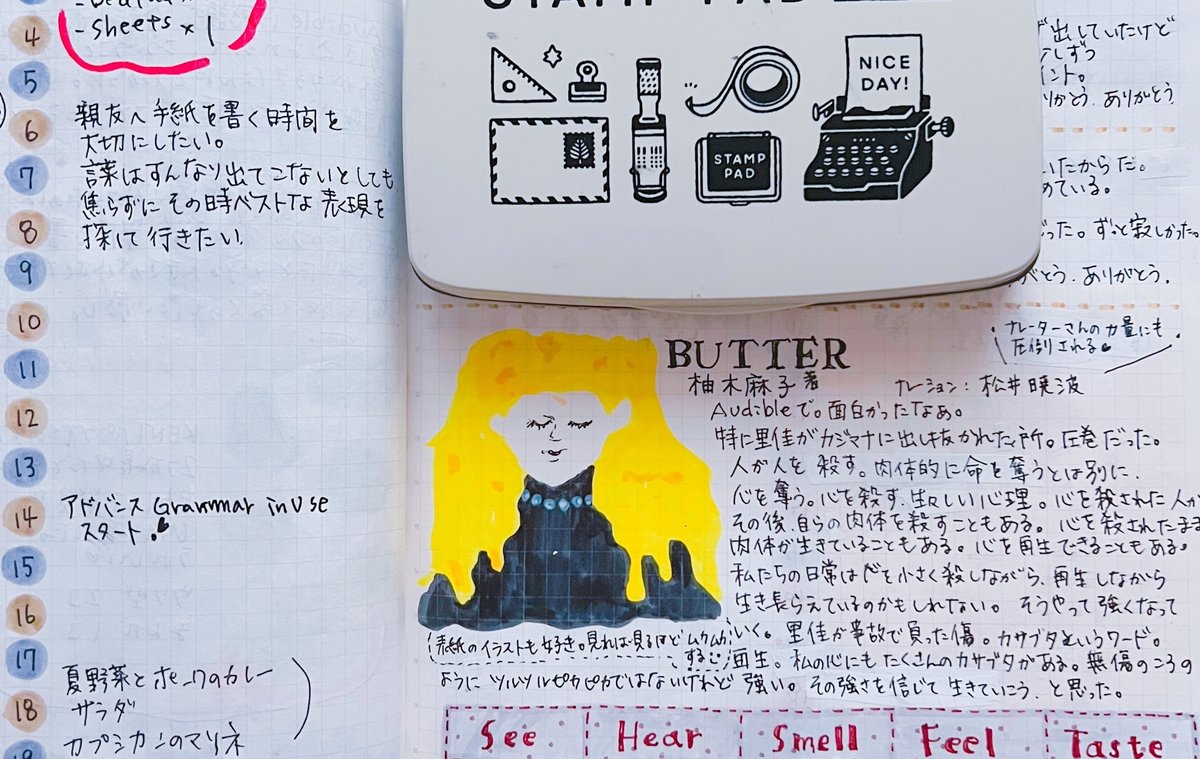 4
- sheets × 1
5
6
7
8
9
10
11
12
13
14
15
16
17
18
親友へ手紙を書く時間を
大切にしたい。
言葉はすんなり出てこないとしても
焦らずにその時ベストな表現を
探して行きたい
アドバンス Grammar in Use
スタート。
夏野菜とポークのカレー
サラダ
カプシカンのマリネ
STAMP PAD
NICE
DAY!
STAMP
PAD
出していたけど
しずつ
イント。
ありがとう、ありがとう
いたからだ。
めている。
った。ずっと寂しかった。
がとう、ありがとう。
ナレーターさんの力量にも
圧倒される
BUTTER
柚木麻子著 ナレーション：松井暁波
Audibleで。面白かったなぁ。
特に里佳がカジマナに出し抜かれた所。圧巻だった。
人が人を殺す。肉体的に命を奪うとは別に、
心を奪う。心を殺す、生々しい心理。心を殺された人が
その後、自らの肉体を殺すこともある。心を殺されたまま
肉体が生きていることもある。心を再生できることもある。
私たちの日常は心を小さく殺しながら、再生しながら
生き長らえているのかもしれない。そうやって強くなって
いく。里佳が事故で負った傷。カサブタというワード。
再生。私の心にもたくさんのカサブタがある。無傷のころの
ようにツルツルピカピカではないけれど強い。その強さを信じて生きていこう、と思った。
表紙のイラストも好き。見れば見るほどムカムカ
する
See Hear Smell Feel Taste